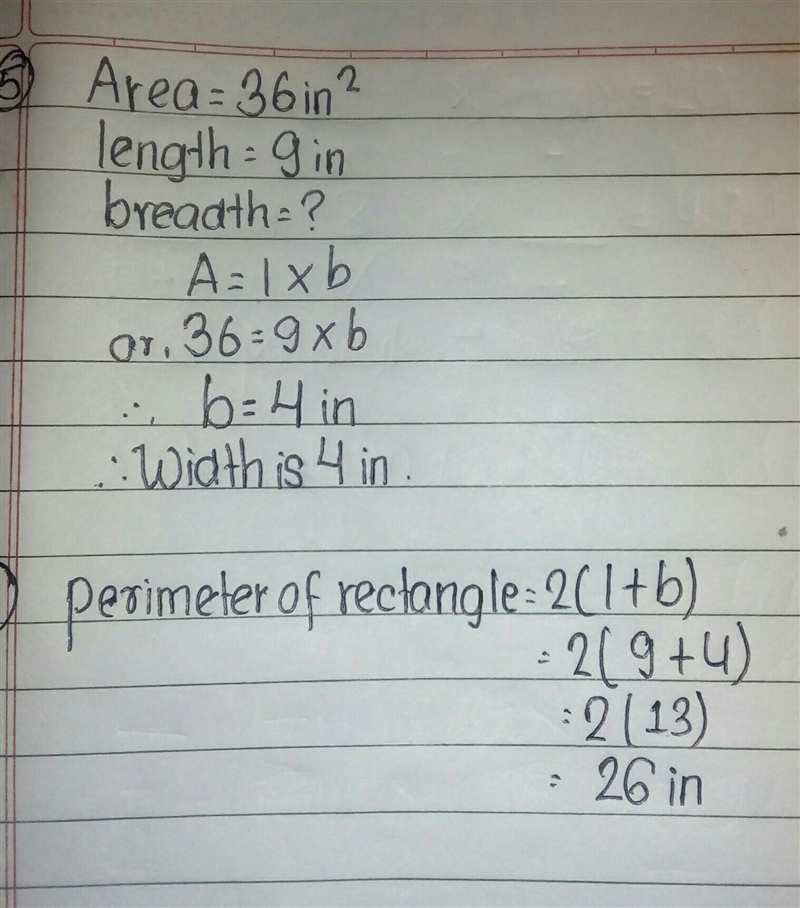 5 Area = 36 in²
length = 9 in
breadth = ?
A = l × b
or, 36 = 9 × b
∴ b = 4 in
∴ Width is 4 in.
perimeter of rectangle = 2(l+b)
= 2(9+4)
= 2(13)
= 26 in